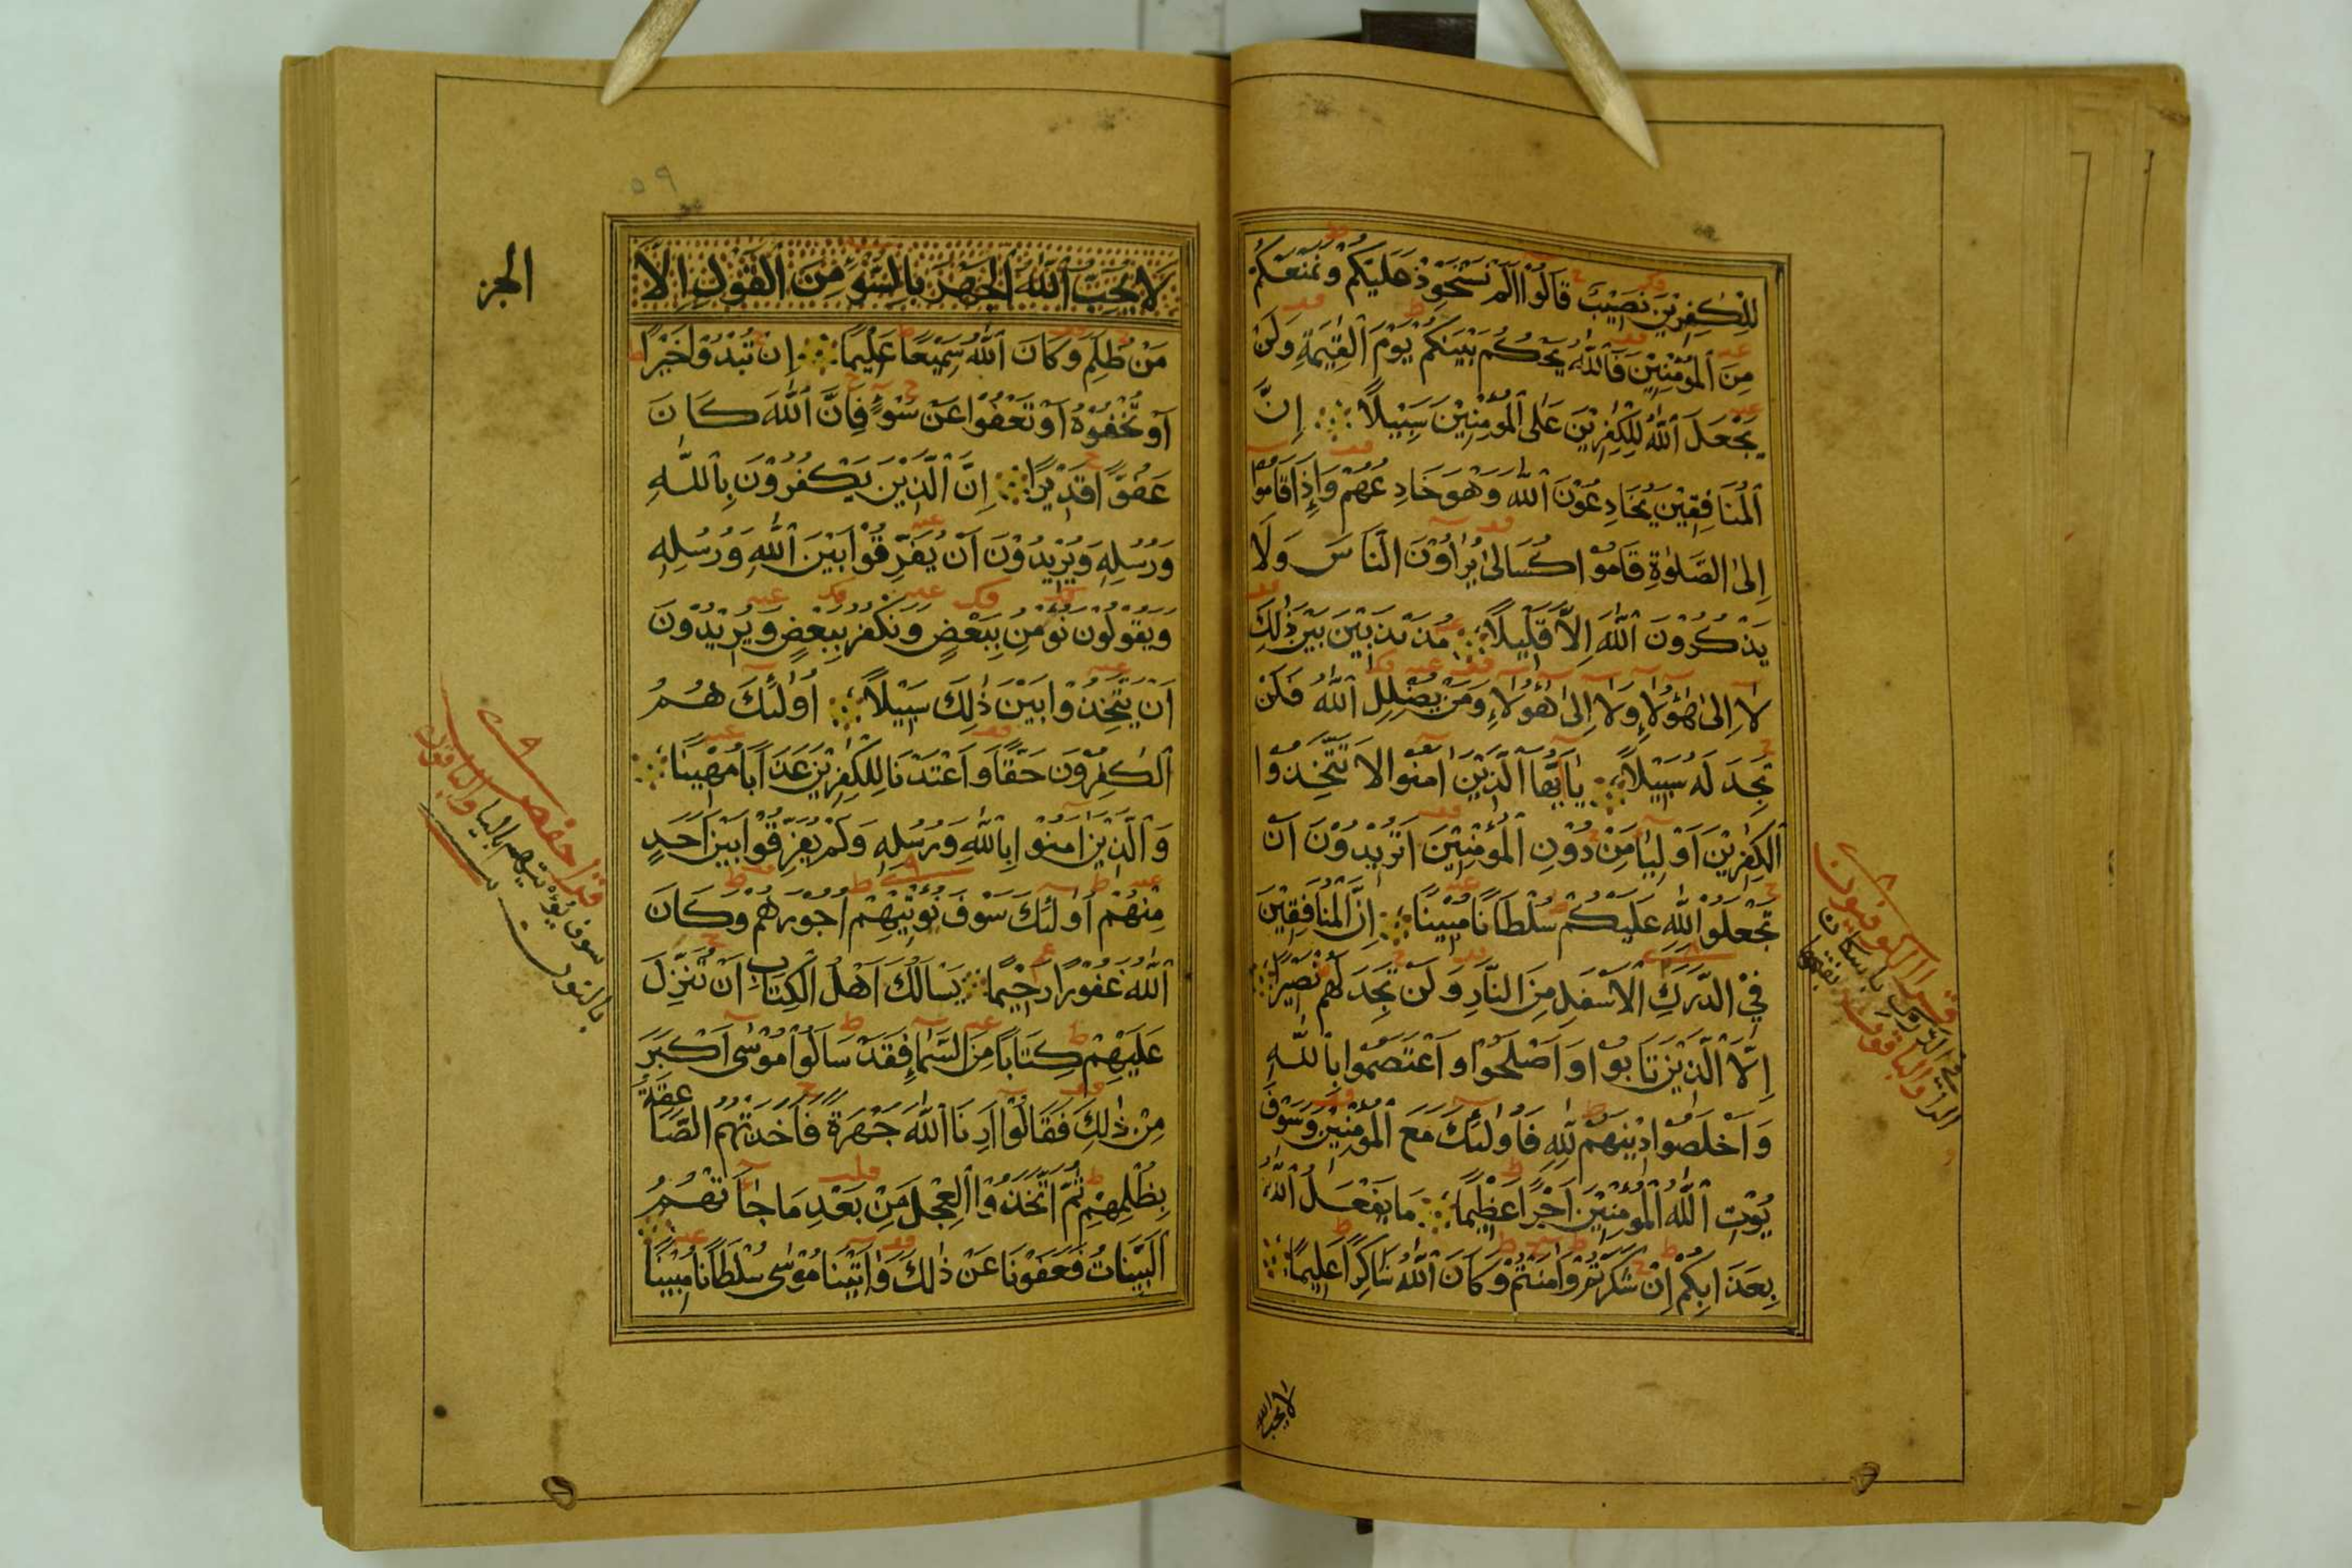 لِلْكٰفِرِيْنَ نَصِيْبٌ قَالُوْا اَلَمْ نَسْتَحْوِذْ عَلَيْكُمْ وَنَمْنَعْكُمْ
مِنَ الْمُؤْمِنِيْنَ فَاللّٰهُ يَحْكُمُ بَيْنَكُمْ يَوْمَ الْقِيٰمَةِ وَلَنْ
يَجْعَلَ اللّٰهُ لِلْكٰفِرِيْنَ عَلَى الْمُؤْمِنِيْنَ سَبِيْلًا اِنَّ
الْمُنَافِقِيْنَ يُخَادِعُوْنَ اللّٰهَ وَهُوَ خَادِعُهُمْ وَاِذَا قَامُوْا
اِلَى الصَّلٰوةِ قَامُوْا كُسَالٰى يُرَاؤُنَ النَّاسَ وَلَا
يَذْكُرُوْنَ اللّٰهَ اِلَّا قَلِيْلًا مُذَبْذَبِيْنَ بَيْنَ ذٰلِكَ
لَا اِلٰى هٰؤُلَاءِ وَلَا اِلٰى هٰؤُلَاءِ وَمَنْ يُضْلِلِ اللّٰهُ فَلَنْ
تَجِدَ لَهُ سَبِيْلًا يٰاَيُّهَا الَّذِيْنَ اٰمَنُوْا لَا تَتَّخِذُوا
الْكٰفِرِيْنَ اَوْلِيَاءَ مِنْ دُوْنِ الْمُؤْمِنِيْنَ اَتُرِيْدُوْنَ اَنْ
تَجْعَلُوْا لِلّٰهِ عَلَيْكُمْ سُلْطَانًا مُبِيْنًا اِنَّ الْمُنَافِقِيْنَ
فِي الدَّرْكِ الْاَسْفَلِ مِنَ النَّارِ وَلَنْ تَجِدَ لَهُمْ نَصِيْرًا
اِلَّا الَّذِيْنَ تَابُوْا وَاَصْلَحُوْا وَاعْتَصَمُوْا بِاللّٰهِ
وَاَخْلَصُوْا دِيْنَهُمْ لِلّٰهِ فَاُولٰئِكَ مَعَ الْمُؤْمِنِيْنَ وَسَوْفَ
يُؤْتِ اللّٰهُ الْمُؤْمِنِيْنَ اَجْرًا عَظِيْمًا مَا يَفْعَلُ اللّٰهُ
بِعَذَابِكُمْ اِنْ شَكَرْتُمْ وَاٰمَنْتُمْ وَكَانَ اللّٰهُ شَاكِرًا عَلِيْمًا
لا يحب الله
الجز
لَا يُحِبُّ اللّٰهُ الْجَهْرَ بِالسُّوْءِ مِنَ الْقَوْلِ اِلَّا
مَنْ ظُلِمَ وَكَانَ اللّٰهُ سَمِيْعًا عَلِيْمًا اِنْ تُبْدُوْا خَيْرًا
اَوْ تُخْفُوْهُ اَوْ تَعْفُوْا عَنْ سُوْءٍ فَاِنَّ اللّٰهَ كَانَ
عَفُوًّا قَدِيْرًا اِنَّ الَّذِيْنَ يَكْفُرُوْنَ بِاللّٰهِ
وَرُسُلِهٖ وَيُرِيْدُوْنَ اَنْ يُفَرِّقُوْا بَيْنَ اللّٰهِ وَرُسُلِهٖ
وَيَقُوْلُوْنَ نُؤْمِنُ بِبَعْضٍ وَنَكْفُرُ بِبَعْضٍ وَيُرِيْدُوْنَ
اَنْ يَتَّخِذُوْا بَيْنَ ذٰلِكَ سَبِيْلًا اُولٰئِكَ هُمُ
الْكٰفِرُوْنَ حَقًّا وَاَعْتَدْنَا لِلْكٰفِرِيْنَ عَذَابًا مُهِيْنًا
وَالَّذِيْنَ اٰمَنُوْا بِاللّٰهِ وَرُسُلِهٖ وَلَمْ يُفَرِّقُوْا بَيْنَ اَحَدٍ
مِنْهُمْ اُولٰئِكَ سَوْفَ نُؤْتِيْهِمْ اُجُوْرَهُمْ وَكَانَ
اللّٰهُ غَفُوْرًا رَحِيْمًا يَسْاَلُكَ اَهْلُ الْكِتَابِ اَنْ تُنَزِّلَ
عَلَيْهِمْ كِتَابًا مِنَ السَّمَاءِ فَقَدْ سَاَلُوْا مُوْسٰى اَكْبَرَ
مِنْ ذٰلِكَ فَقَالُوْا اَرِنَا اللّٰهَ جَهْرَةً فَاَخَذَتْهُمُ الصَّاعِقَةُ
بِظُلْمِهِمْ ثُمَّ اتَّخَذُوا الْعِجْلَ مِنْ بَعْدِ مَا جَاءَتْهُمُ
الْبَيِّنَاتُ فَعَفَوْنَا عَنْ ذٰلِكَ وَاٰتَيْنَا مُوْسٰى سُلْطَانًا مُبِيْنًا
قرا حفص
سوف يؤتيهم باليا والباقون
بالنون